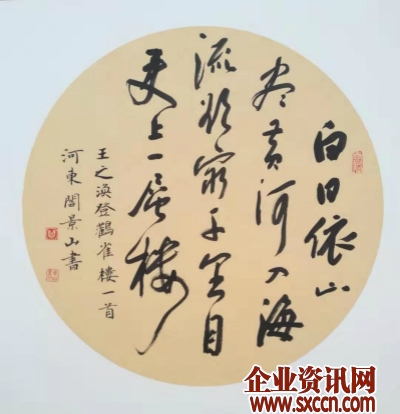 白日依山
尽黄河入海
流欲穷千里目
更上一层楼
王之涣登鹳雀楼一首
河东阎景山书
企业资讯网
www.sxccn.com